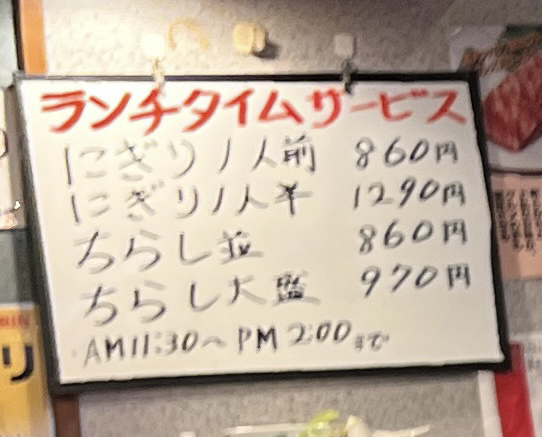 ランチタイムサービス
にぎり1人前 860円
にぎり1人半 1290円
ちらし並 860円
ちらし大盛 970円
AM11:30~PM2:00まで
リ